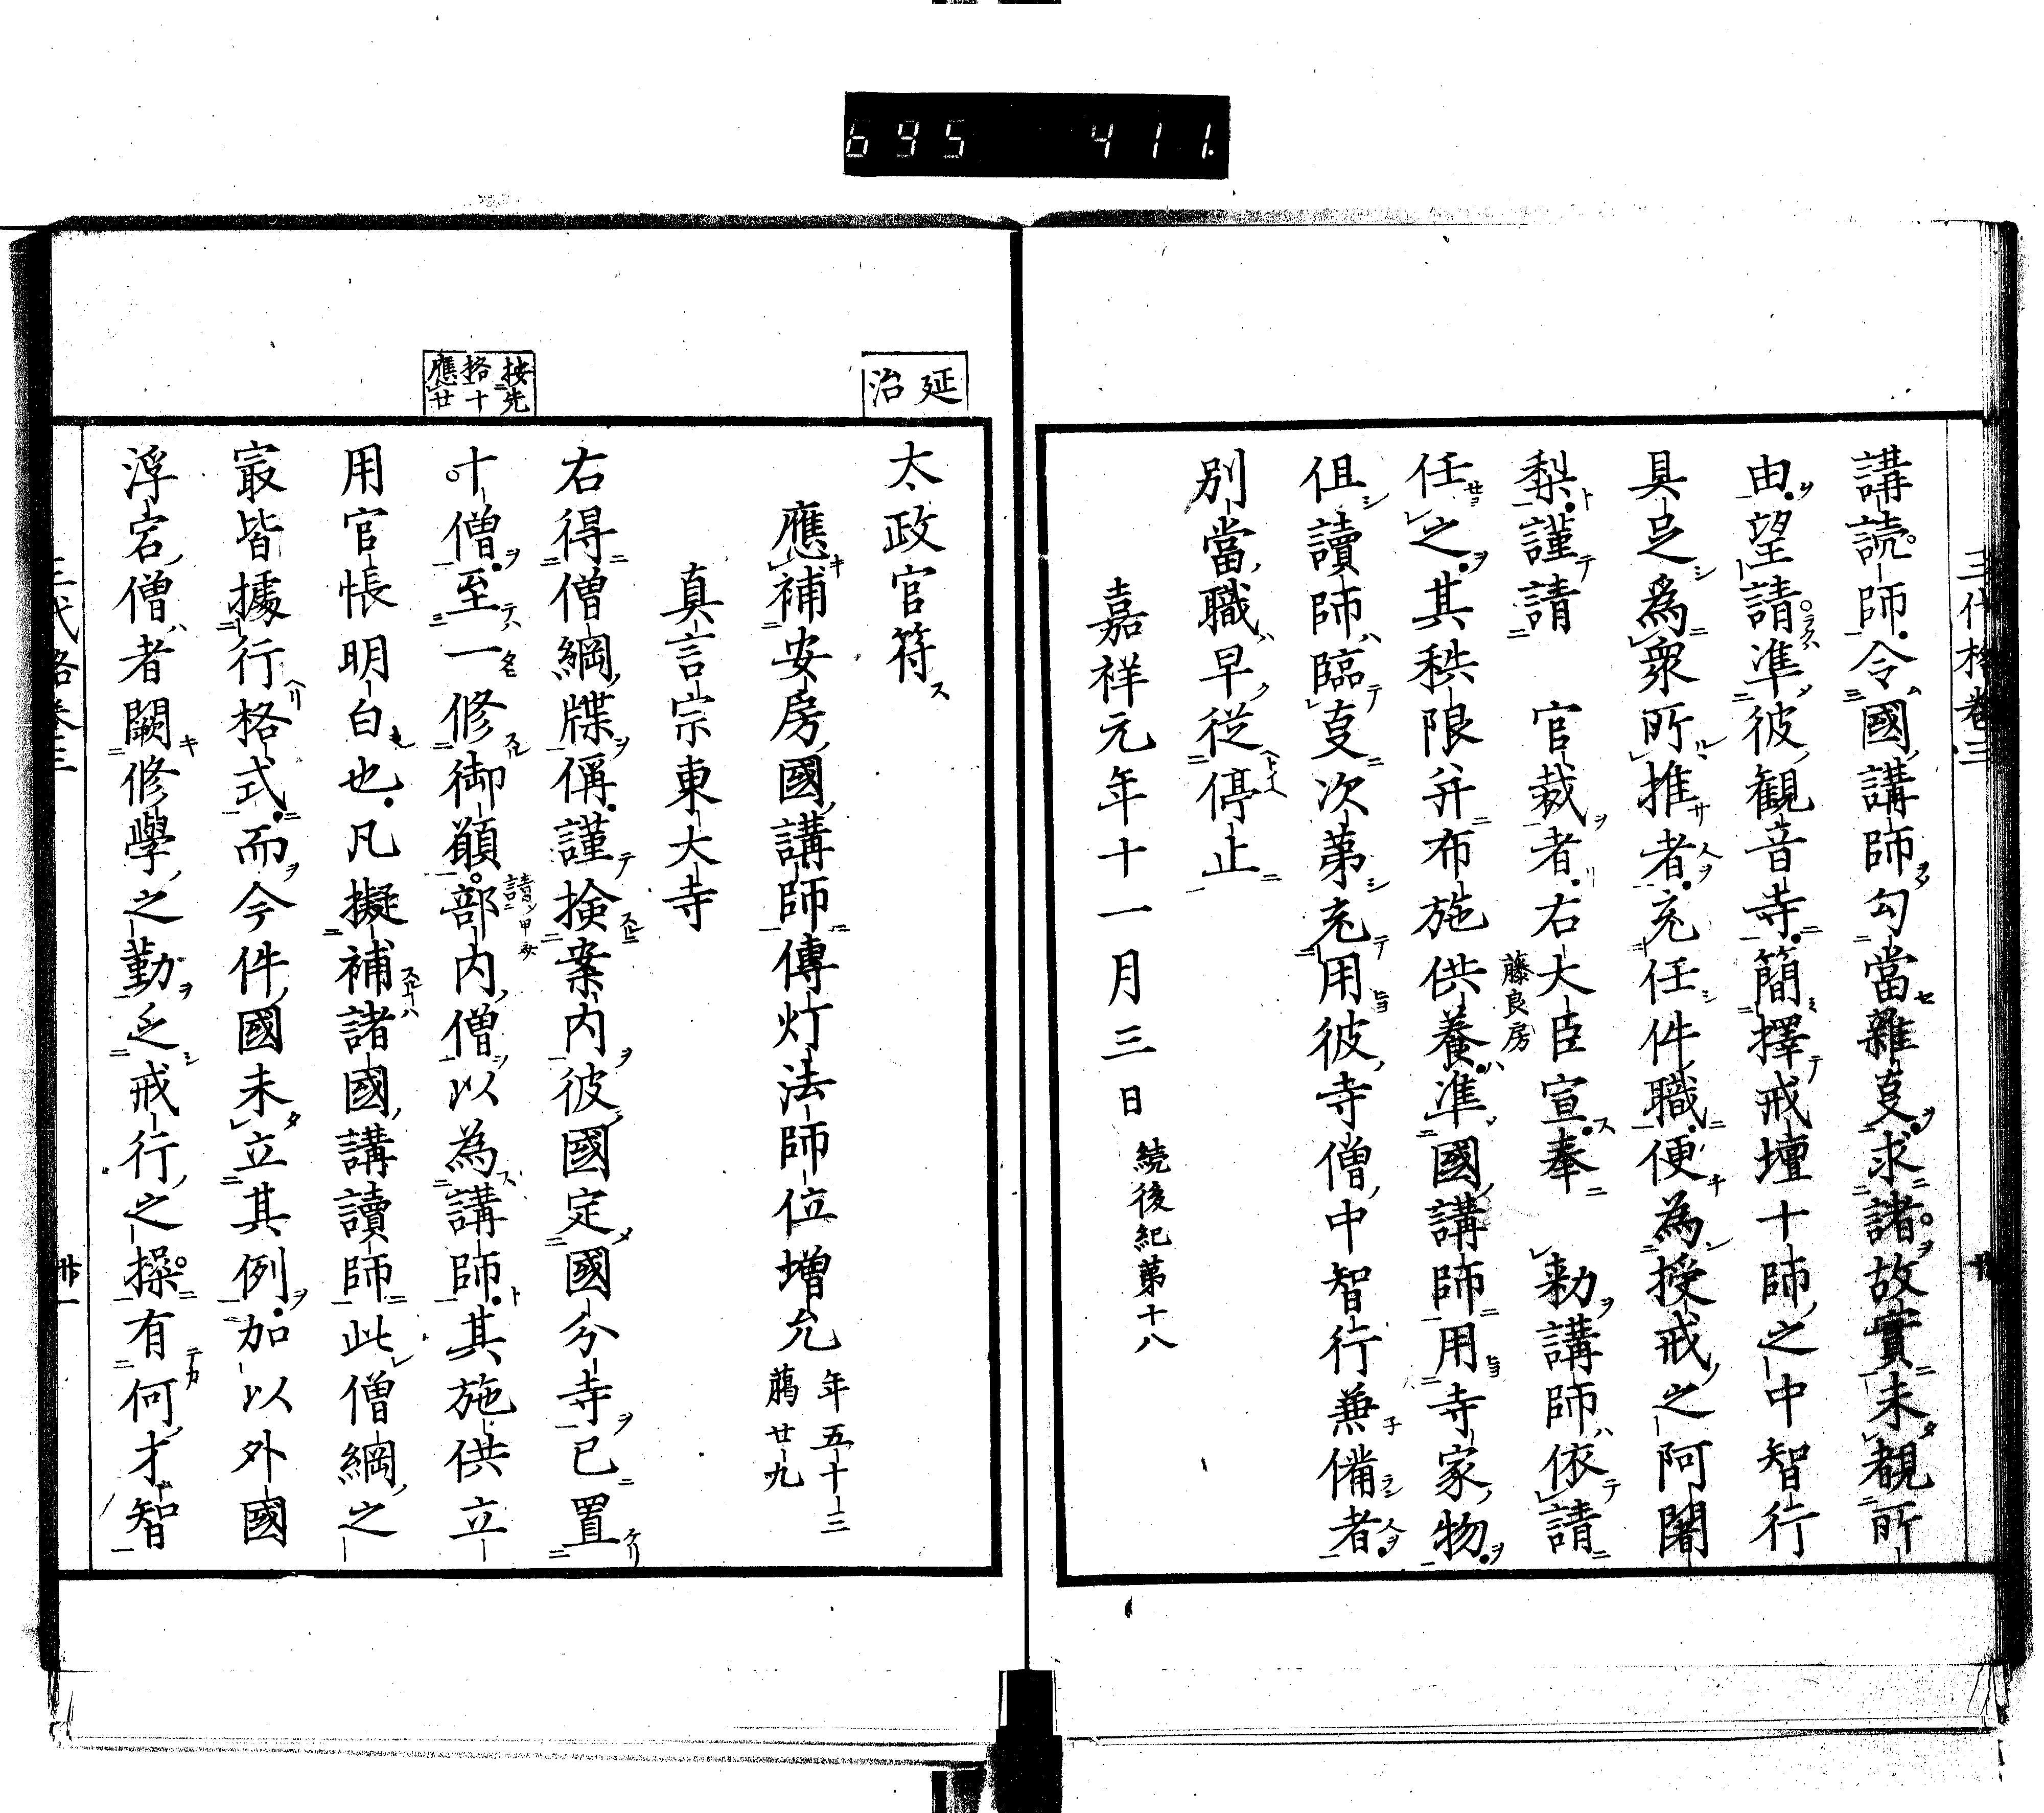 695 411.
三代格卷三
講読師令國講師勾當雜㕝求諸故實未覩所
由望請准彼観音寺簡擇戒壇十師之中智行
具足爲衆所推者充任件職便為授戒之阿闍
梨謹請 官裁者右大臣宣奉 勅講師依請
藤良房
任之其秩限并布施供養准國講師用寺家物
但讀師臨㕝次第充用彼寺僧中智行兼備者
別當職早従停止
嘉祥元年十一月三日 続後紀第十八
延治
太政官符
應補安房國講師傳灯法師位增允 年五十三 﨟廿九
真言宗東大寺
右得僧綱牒偁謹撿案内彼國定國分寺已置
按先格十應廿
十僧至一修御願部内僧以為講師其施供立
用官帳明白也凡擬補諸國講讀師此僧綱之
㝡皆據行格式而今件國未立其例加以外國
浮宕僧者闕修學之勤乏戒行之操有何才智
三代格卷三
卅一